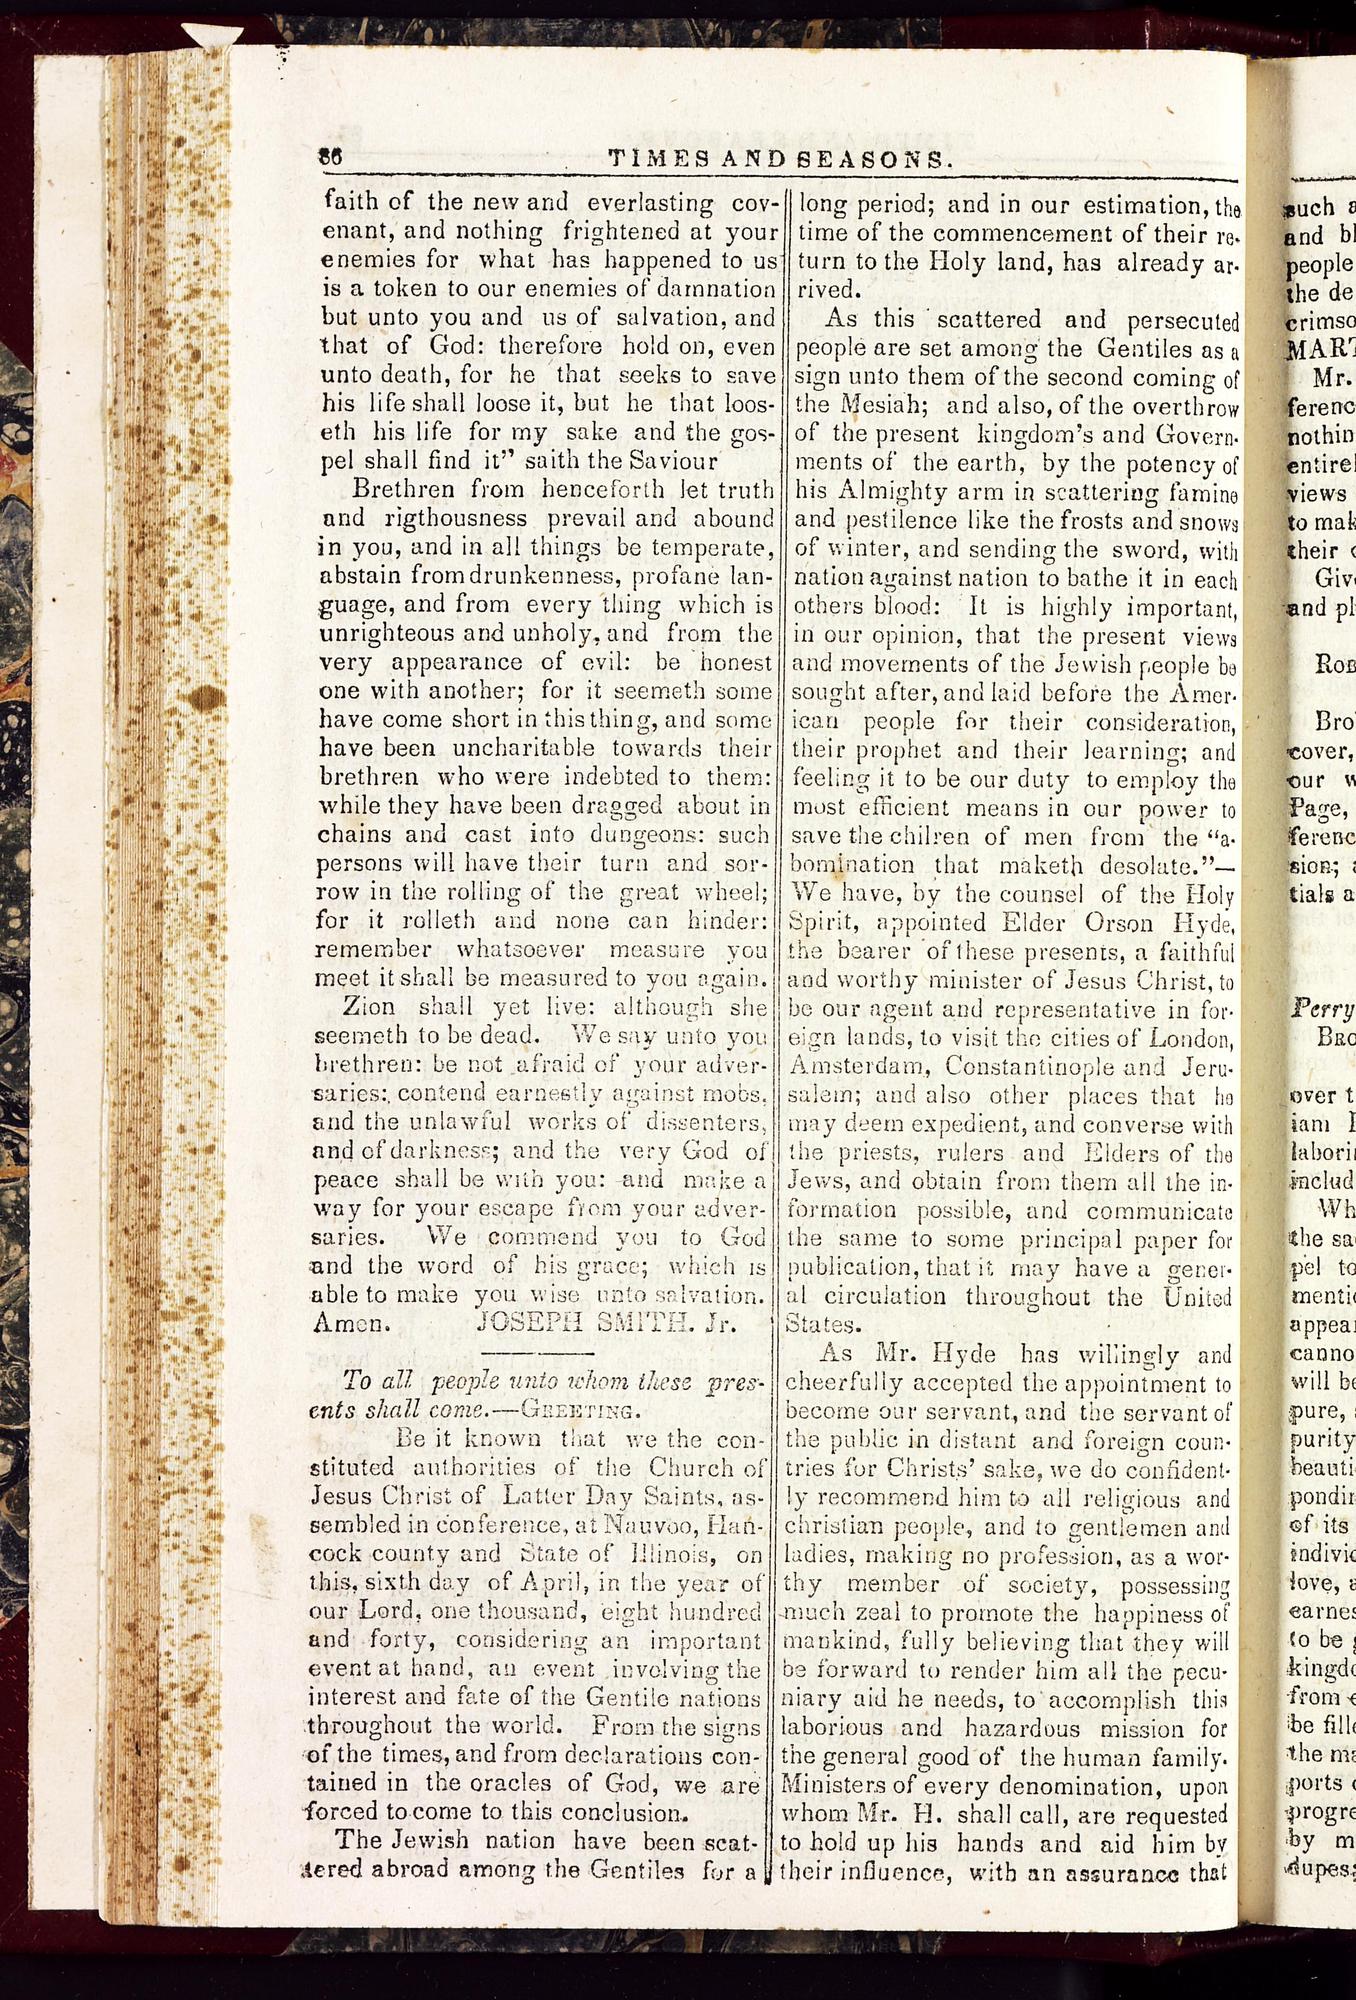 86
TIMES AND SEASONS.
faith of the new and everlasting cov-
enant, and nothing frightened at your
enemies for what has happened to us
is a token to our enemies of damnation
but unto you and us of salvation, and
that of God: therefore hold on, even
unto death, for he that seeks to save
his life shall loose it, but he that loos-
eth his life for my sake and the gos-
pel shall find it" saith the Saviour
Brethren from henceforth let truth
and rigthousness prevail and abound
in you, and in all things be temperate,
abstain from drunkenness, profane lan-
guage, and from every thing which is
unrighteous and unholy, and from the
very appearance of evil: be honest
one with another; for it seemeth some
have come short in this thing, and some
have been uncharitable towards their
brethren who were indebted to them:
while they have been dragged about in
chains and cast into dungeons: such
persons will have their turn and sor-
row in the rolling of the great wheel;
for it rolleth and none can hinder:
remember whatsoever measure you
meet it shall be measured to you again.
Zion shall yet live: although she
seemeth to be dead. We say unto you
brethren: be not afraid of your adver-
saries: contend earnestly against mobs,
and the unlawful works of dissenters,
and of darkness; and the very God of
peace shall be with you: and make a
way for your escape from your adver-
saries. We commend you to God
and the word of his grace; which is
able to make you wise unto salvation.
Amen. JOSEPH SMITH. Jr.
To all people unto whom these pres-
ents shall come.—GREETING.
Be it known that we the con-
stituted authorities of the Church of
Jesus Christ of Latter Day Saints, as-
sembled in conference, at Nauvoo, Han-
cock county and State of Illinois, on
this, sixth day of April, in the year of
our Lord, one thousand, eight hundred
and forty, considering an important
event at hand, an event involving the
interest and fate of the Gentile nations
throughout the world. From the signs
of the times, and from declarations con-
tained in the oracles of God, we are
forced to come to this conclusion.
The Jewish nation have been scat-
tered abroad among the Gentiles for a
long period; and in our estimation, the
time of the commencement of their re-
turn to the Holy land, has already ar-
rived.
As this scattered and persecuted
people are set among the Gentiles as a
sign unto them of the second coming of
the Mesiah; and also, of the overthrow
of the present kingdom's and Govern-
ments of the earth, by the potency of
his Almighty arm in scattering famine
and pestilence like the frosts and snows
of winter, and sending the sword, with
nation against nation to bathe it in each
others blood: It is highly important,
in our opinion, that the present views
and movements of the Jewish people be
sought after, and laid before the Amer-
ican people for their consideration,
their prophet and their learning; and
feeling it to be our duty to employ the
most efficient means in our power to
save the chilren of men from the "a-
bomination that maketh desolate."—
We have, by the counsel of the Holy
Spirit, appointed Elder Orson Hyde,
the bearer of these presents, a faithful
and worthy minister of Jesus Christ, to
be our agent and representative in for-
eign lands, to visit the cities of London,
Amsterdam, Constantinople and Jeru-
salem; and also other places that he
may deem expedient, and converse with
the priests, rulers and Elders of the
Jews, and obtain from them all the in-
formation possible, and communicate
the same to some principal paper for
publication, that it may have a gener-
al circulation throughout the United
States.
As Mr. Hyde has willingly and
cheerfully accepted the appointment to
become our servant, and the servant of
the public in distant and foreign coun-
tries for Christs' sake, we do confident-
ly recommend him to all religious and
christian people, and to gentlemen and
ladies, making no profession, as a wor-
thy member of society, possessing
much zeal to promote the happiness of
mankind, fully believing that they will
be forward to render him all the pecu-
niary aid he needs, to accomplish this
laborious and hazardous mission for
the general good of the human family.
Ministers of every denomination, upon
whom Mr. H. shall call, are requested
to hold up his hands and aid him by
their influence, with an assurance that
such
and
people
the
Mr.
views
their
and
cover,
our
Page,
Perry
over
the
will be
pure,
purity
of its
love,
to be
from
by